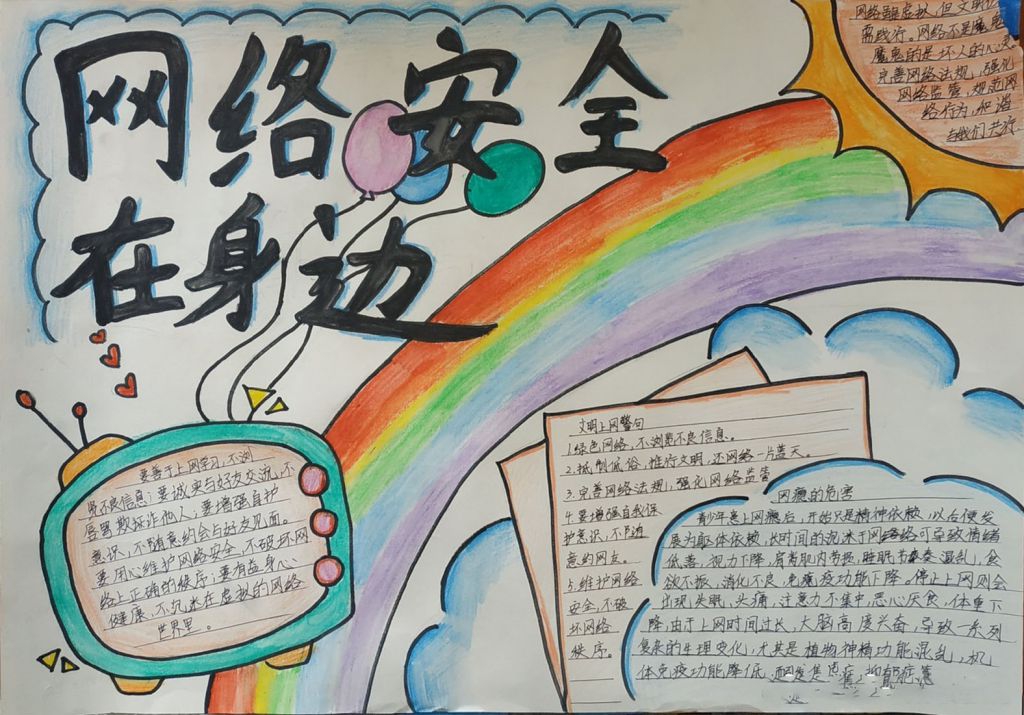 网络安全
在身边
网络虽虚拟,但文明
离践行。网络不是魔鬼
魔鬼的是坏人的心灵
完善网络法规,强化
网络监管,规范网
络行为,和谐
与我们共存
要善于上网学习,不浏
览不良信息;要诚实与好友交流,不
辱骂欺诈他人;要增强自护
意识,不随意约会与好友见面。
要用心维护网络安全,不破坏网
络上正确的秩序;要有益身心
健康,不沉迷在虚拟的网络
世界里。
文明上网警句
1.绿色网络,不浏览不良信息。
2.抵制低俗,推行文明,还网络一片蓝天。
3.完善网络法规,强化网络监管
4.要增强自我保
护意识,不随
意约网点。
5.维护网络
安全,不破
坏网络
秩序。
网瘾的危害
青少年患上网瘾后,开始只是精神依赖,以后便发
展为躯体依赖,长时间的沉迷于网络可导致情绪
低落,视力下降,肩背肌肉劳损,睡眠节奏紊乱,食
欲不振,消化不良,免疫功能下降。停止上网则会
出现失眠,头痛,注意力不集中,恶心厌食,体重下
降,由于上网时间过长,大脑高度兴奋,导致一系列
复杂的生理变化,尤其是植物神精功能混乱,机
体免疫功能降低